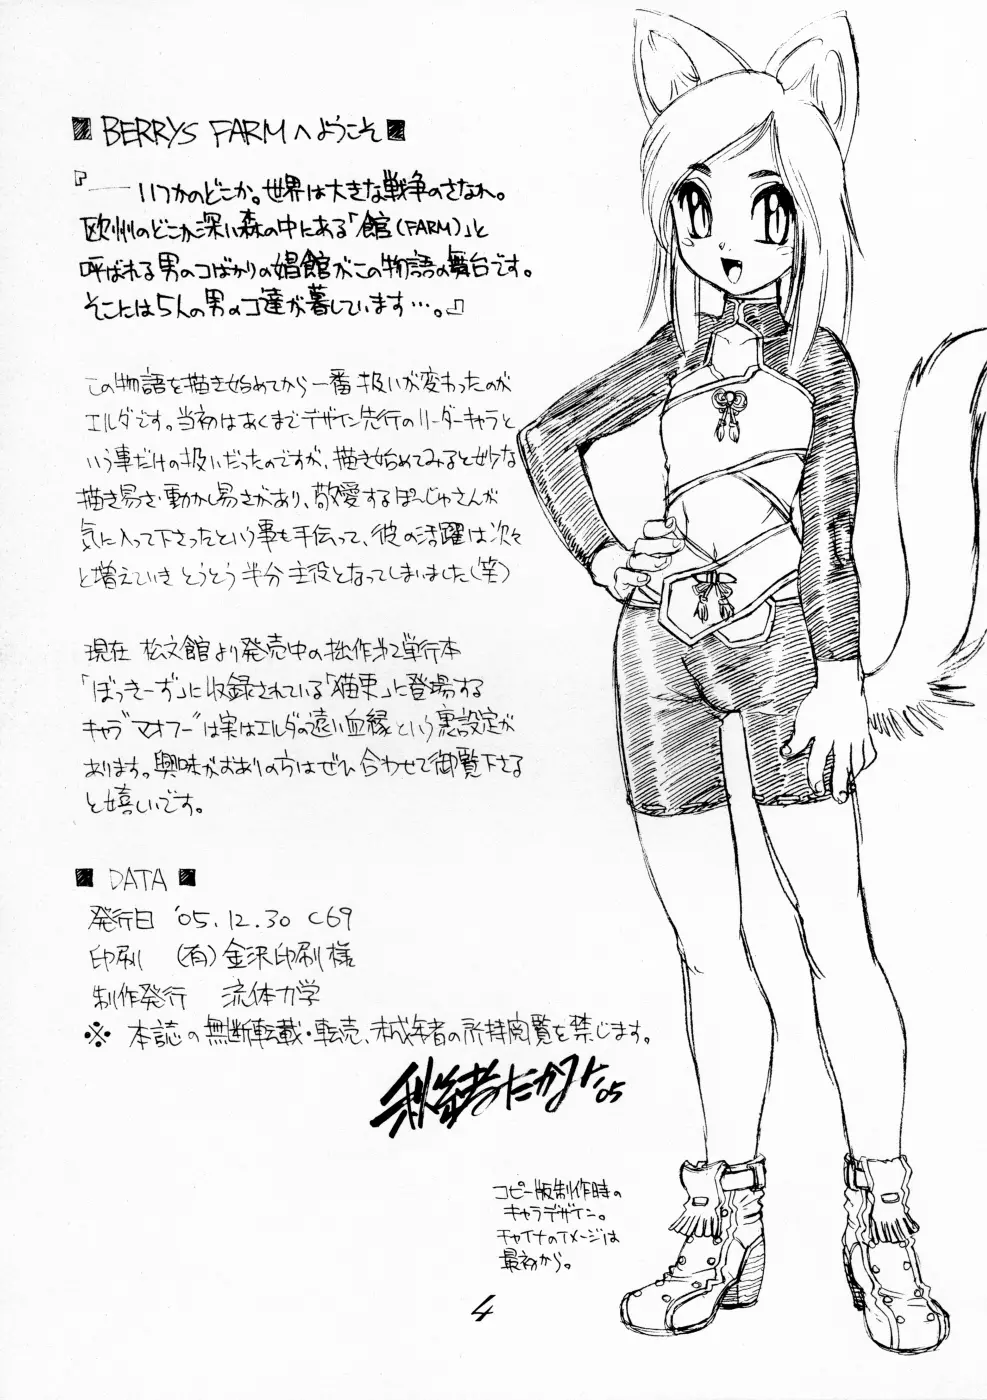 ■ BERRYS FARMへようこそ ■
『──いつかのどこか。世界は大きな戦争のさなか。
欧州のどこか深い森の中にある「館(FARM)」と
呼ばれる男のコばかりの娼館がこの物語の舞台です。
そこには5人の男のコ達が暮しています…。』
この物語を描き始めてから一番扱いが変わったのが
エルダです。当初はあくまでデザイン先行のリーダーキャラと
いう事だけの扱いだったのですが、描き始めてみると妙な
描き易さ・動かし易さがあり、敬愛するぽーじゅさんが
気に入って下さったという事も手伝って、彼の活躍は次々
と増えていきとうとう半分主役となってしまいました(笑)
現在 松文館より発売中の拙作第2単行本
「ぼっきーず」に収録されている「猫東」に登場する
キャラ"マオフー"は実はエルダの遠い血縁という裏設定が
あります。興味がおありの方はぜひ合わせて御覧下さる
と嬉しいです。
■ DATA ■
発行日 '05.12.30 C69
印刷 (有)金沢印刷様
制作発行 流体力学
※ 本誌の無断転載・転売、未成年者の所持閲覧を禁じます。
'05
コピー版制作時の
キャラデザイン。
チャイナのイメージは
最初から。
4